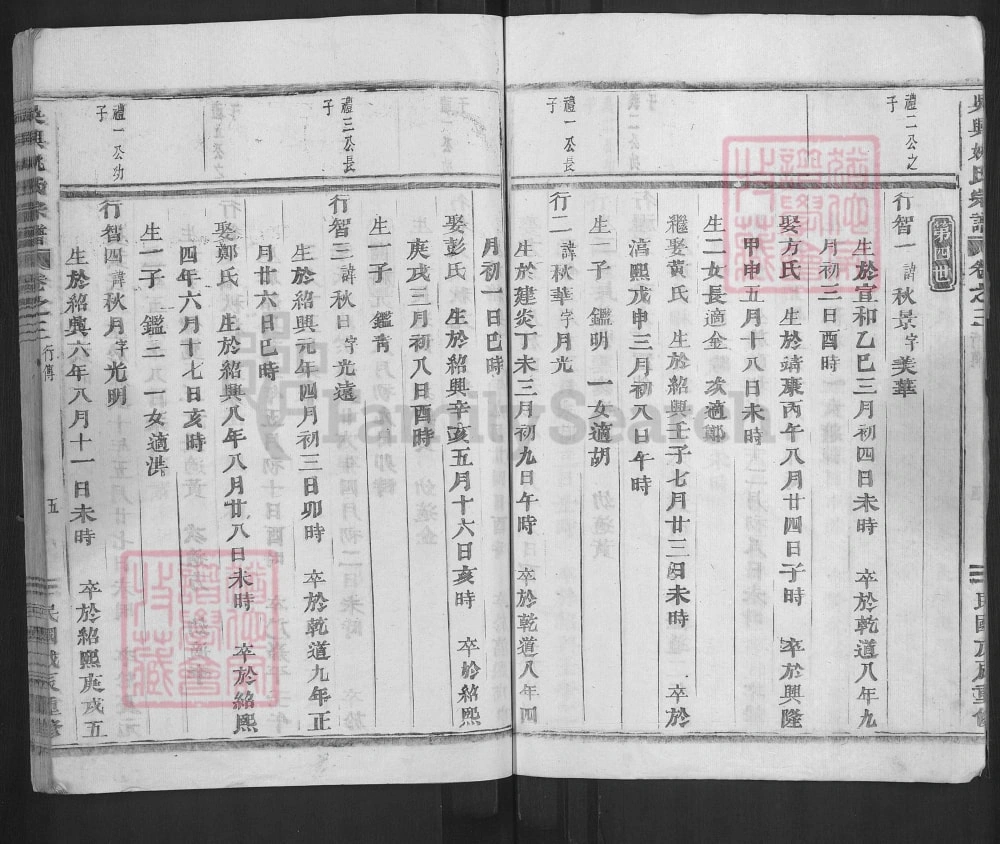 吳興姚氏宗譜 卷之三
民國戊辰重修
第四世
禮二公之
子
行智一 諱秋景字美華
生於宣和乙巳三月初四日未時 卒於乾道八年九
月初三日酉時
娶方氏 生於靖康丙午八月廿四日子時 卒於興隆
甲申五月十八日未時
生二女長適金 次適鄭
繼娶黃氏 生於紹興壬子七月廿三日未時 卒於
淳熙戊申三月初八日午時
生一子 鑑明 一女適胡
禮一公長
子
行二 諱秋華字月光
生於建炎丁未三月初九日午時 卒於乾道八年四
月初一日巳時
娶彭氏 生於紹興辛亥五月十六日亥時 卒於紹熙
庚戌三月初八日酉時
生一子 鑑青
禮三公長
子
行智三 諱秋日字光遠
生於紹興元年四月初三日卯時 卒於乾道九年正
月廿六日巳時
娶鄭氏 生於紹興八年八月廿八日未時 卒於紹熙
四年六月十七日亥時
生一子 鑑二 一女適洪
禮一公幼
子
行智四 諱秋月字光明
生於紹興六年八月十一日未時 卒於紹熙庚戌五
吳興姚氏宗譜 卷之三 行傳
五
民國戊辰重修
FamilySearch